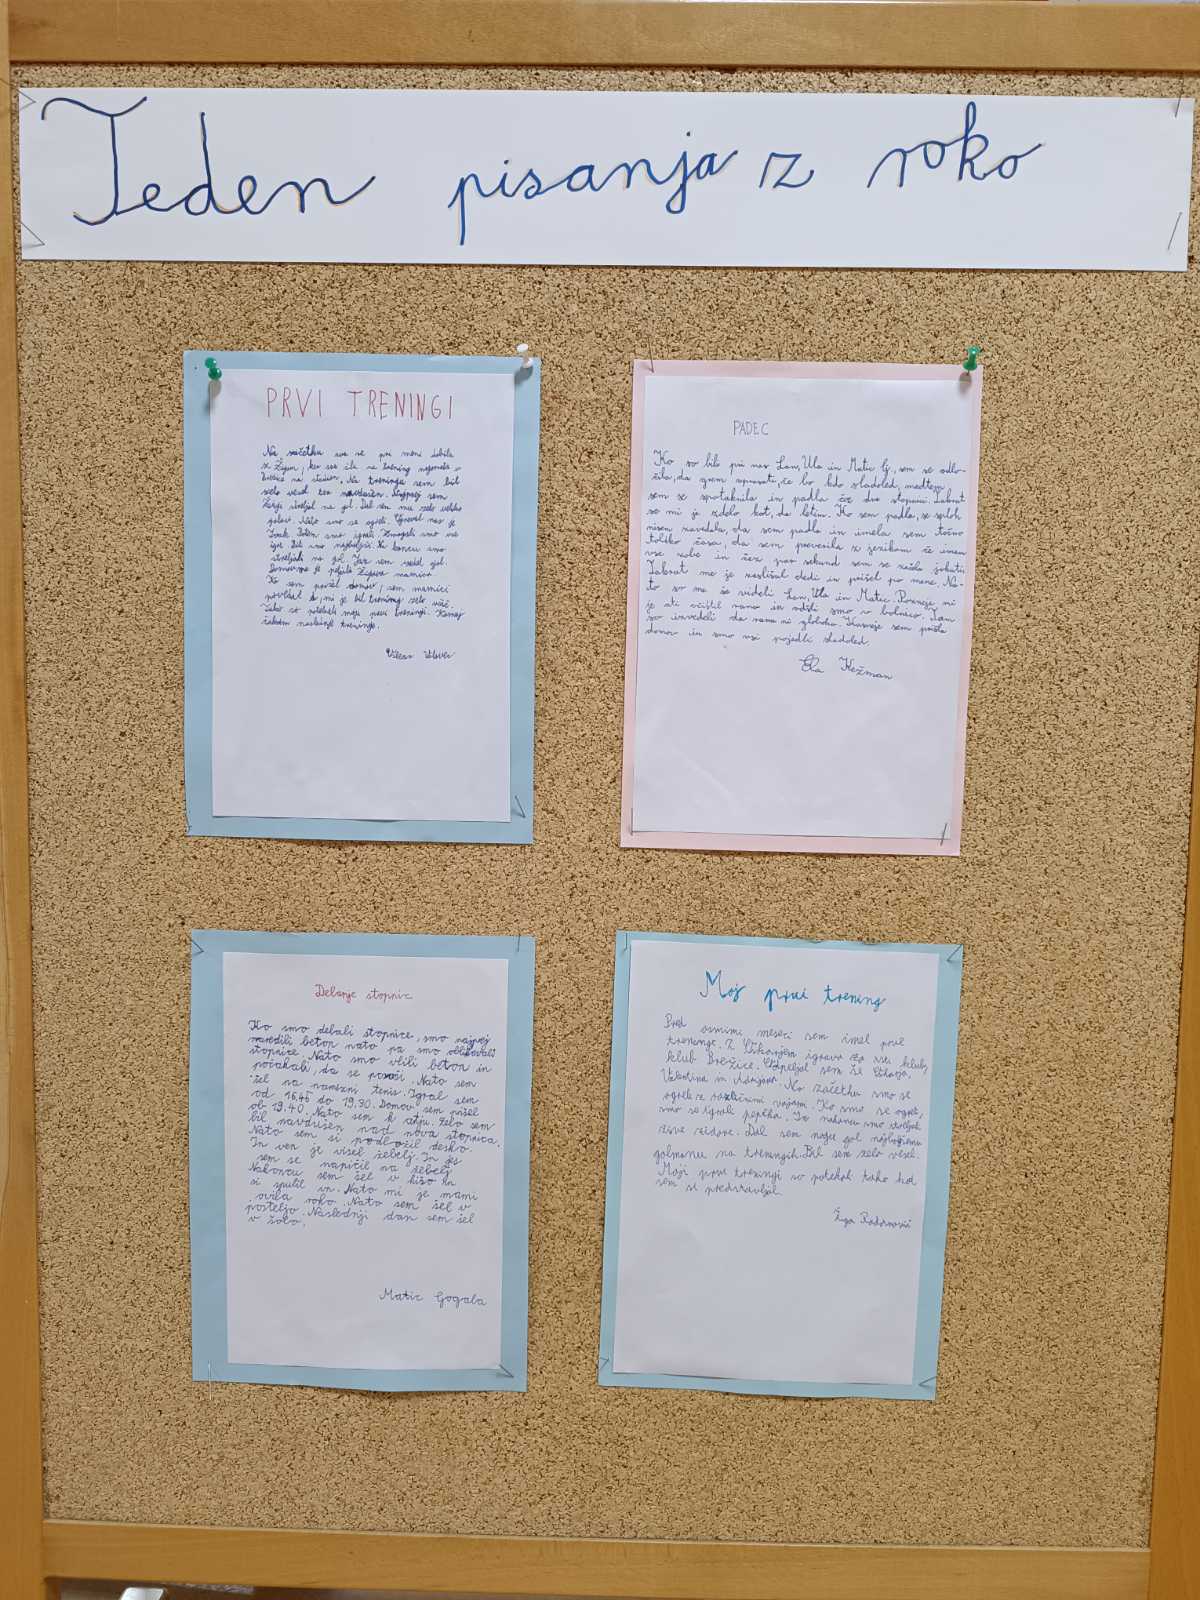 Teden pisanja z roko
PRVI TRENINGI
Na začetku sva se pri meni dobila
z Žigom, ker sva šla na trening
na stadion. Na treningu sem bil
zelo vesel ter navdušen. Najprej sem
žogo streljal na gol. Dal sem mu zelo veliko
golov. Nato smo se ogreli. nas je
Potem smo igrali. Zmagali smo vse
igre. Bili smo najboljši. Na koncu smo
streljali na gol. Jaz sem
Domov me je peljala Žigova mamica.
Ko sem prišel domov, sem mamici
povedal, da mi je bil trening zelo všeč.
Tako so potekali moji prvi treningi. Komaj
čakam naslednje treninge.
PADEC
Ko so bili pri nas Lan, Ula in Matic lj, sem se odlo-
čila, da grem vprašat, če bo kdo sladoled, medtem
sem se spotaknila in padla čez dve stopnici. Takrat
se mi je zdelo kot, da letim. Ko sem padla, se sploh
nisem zavedala, da sem padla in imela sem točno
toliko časa, da sem preverila z jezikom če imam
vse zobe in čez par sekund sem se začela jokati.
Takrat me je zaslišal dedi in prišel po mene. Na-
to so me še videli Lan, Ula in Matic. Pozneje mi
je ati očistil rano in odšli smo v bolnico. Tam
so izvedeli da rana ni globoka. Kasneje sem prišla
domov in smo vsi pojedli sladoled.
Ela Kežman
Delanje stopnic
Ko smo delali stopnice, smo najprej
naredili beton nato pa smo oblikovali
stopnice. Nato smo vlili beton in
počakali, da se posuši. Nato sem
šel na namizni tenis. Igral sem
od 16.45 do 19.30. Domov sem prišel
ob 19.40. Nato sem k atiju. Zelo sem
bil navdušen nad nova stopnica.
Nato sem si podložil desko.
In ven je visel žebelj. In jes
sem se napičil na žebelj.
Nakoncu sem šel v hišo in
si spulil vn. Nato mi je mami
ovila roko. Nato sem šel v
posteljo. Naslednji dan sem šel
v šolo.
Matic Gogala
Moj prvi trening
Pred osmimi meseci sem imel prve
treninge. Z igrava za isti klub,
klub Brežice. sem še
Valentina in Adrijana. Na začetku smo se
ogreli z različnimi vajami. Ko smo se ogreli,
smo se igrali pepčka. In nakoncu smo
Dal sem nogo gol najboljšemu
golmanu na treningih. Bil sem zelo vesel.
Moji prvi treningi so potekali tako kot
sem si predstavljal.
Žiga Radanović